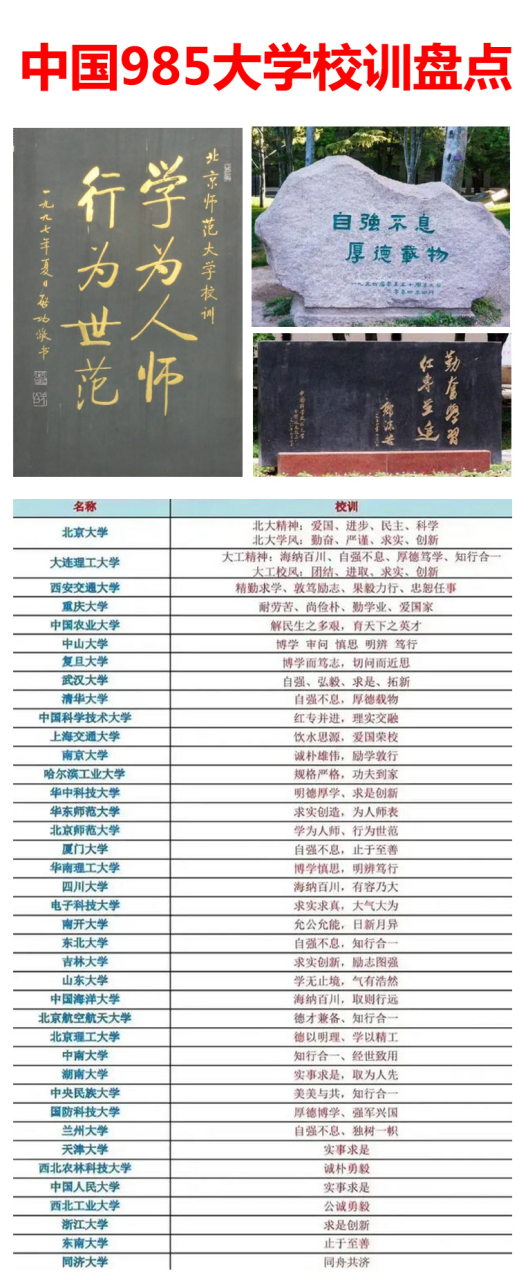 中国985大学校训盘点
北京师范大学校训
学为人师
行为世范
一九九七年夏日启功敬书
自強不息
厚德載物
勤奮學習
红专并进
郭沫若
名称 校训
北京大学 北大精神：爱国、进步、民主、科学
北大学风：勤奋、严谨、求实、创新
大连理工大学 大工精神：海纳百川、自强不息、厚德笃学、知行合一
大工校风：团结、进取、求实、创新
西安交通大学 精勤求学、敦笃励志、果毅力行、忠恕任事
重庆大学 耐劳苦、尚俭朴、勤学业、爱国家
中国农业大学 解民生之多艰，育天下之英才
中山大学 博学 审问 慎思 明辨 笃行
复旦大学 博学而笃志，切问而近思
武汉大学 自强、弘毅、求是、拓新
清华大学 自强不息，厚德载物
中国科学技术大学 红专并进，理实交融
上海交通大学 饮水思源，爱国荣校
南京大学 诚朴雄伟，励学敦行
哈尔滨工业大学 规格严格，功夫到家
华中科技大学 明德厚学、求是创新
华东师范大学 求实创造，为人师表
北京师范大学 学为人师、行为世范
厦门大学 自强不息，止于至善
华南理工大学 博学慎思，明辨笃行
四川大学 海纳百川，有容乃大
电子科技大学 求实求真，大气大为
南开大学 允公允能，日新月异
东北大学 自强不息，知行合一
吉林大学 求实创新，励志图强
山东大学 学无止境，气有浩然
中国海洋大学 海纳百川，取则行远
北京航空航天大学 德才兼备、知行合一
北京理工大学 德以明理、学以精工
中南大学 知行合一、经世致用
湖南大学 实事求是，敢为人先
中央民族大学 美美与共，知行合一
国防科技大学 厚德博学、强军兴国
兰州大学 自强不息、独树一帜
天津大学 实事求是
西北农林科技大学 诚朴勇毅
中国人民大学 实事求是
西北工业大学 公诚勇毅
浙江大学 求是创新
东南大学 止于至善
同济大学 同舟共济